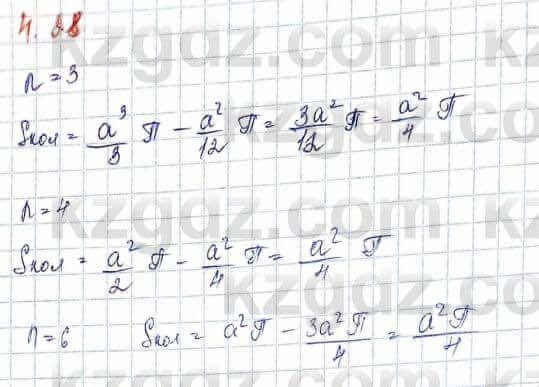 4.28
n = 3
Sкол = a³/3 П − a²/12 П = 3a²/12 П = a²/4 П
n = 4
Sкол = a²/2 П − a²/4 П = a²/4 П
n = 6 Sкол = a²П − 3a²П/4 = a²П/4
kzgdz.com